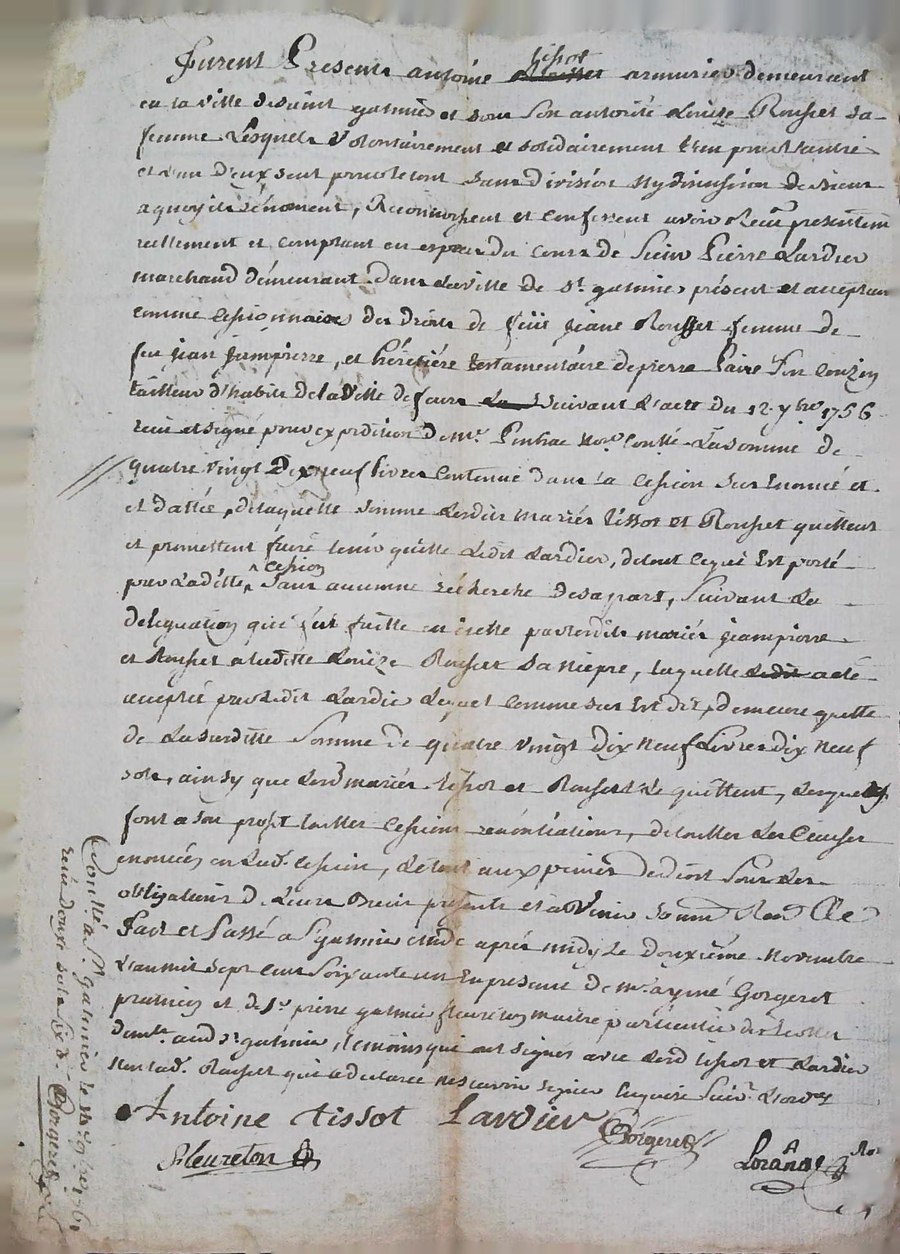 Furent Presents antoine tissot armurier demeurant
en la ville de saint galmier et sous son autorité Louise Rousset sa
femme Lesquels volontairement et solidairement l'un pour l'autre
et l'un d'eux seul pour le tout sans division ny discussion de biens
a quoy ils renoncent, Reconnoissent et confessent avoir Receu presentem
reellement et comptant en especes du cours de sieur Pierre Lardier
marchand demeurant dans la ville de st. galmier present et acceptan
comme cessionnaire des droits de jeane Rousset femme de
feu jean jeampierre, et héritière testamentaire de pierre Paire son couzin
tailleur d'habits de la Ville de feurs suivant L'acte du 12 ybre 1756
receu et signé pour expedition de Me. not. La somme de
quatre vingt dix neuf livres contenue dans la cession sus Enoncé et
et dattée, de laquelle somme Lesdits mariés tissot et Rousset quittent
et promettent faire tenir quitte Ledit Lardier, de tout ce qui Est porté
par Laditte cession sans aucunne récherche de sa part, suivant La
delegation qui fut faitte en icelle par lesdits mariés jeampierre
et Rousset a laditte Louize Rousset sa niepce, laquelle a été
acceptée par Ledit Lardier Lequel comme sus Est dit, demeure quitte
de La susditte somme de quatre vingt dix neuf Livres dix neuf
sols, ainsy que Lesd mariés tissot et Rousset Le quittent, Lesquels
font a son profit touttes cessions renontiations, de touttes Les clauses
enoncées en Lad. cession, Le tout aux peines de droit sous Les
obligations de Leurs biens presents et a Venir
Fait et Passé a St galmier etude après midy Le douxième novembre
L'an mil sept cent soixante un En presence de me. aymé Gorgeret
praticien et de Sr. pierre fleureton maitre
demts. aud St galmier, temoins qui ont signés avec Lesd tissot et Lardier
non lad. Rousset qui a déclaré ne scavoir signer
Antoine tissot Lardier
Gorgeret
fleureton
not
Contllé a St. Galmier le 9bre 1761
receu douze sols six d. Gorgeret